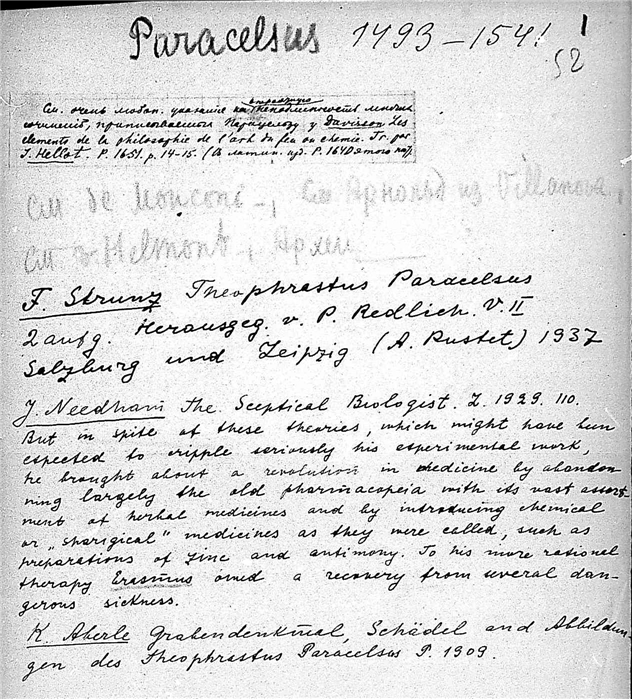 Paracelsus 1493-1541
1
52
См. очень любоп. указание на неподлинность многих
сочинений, приписываемых Парацельсу у Davisson Les
elements de la philosophie de l'art du feu ou chemie. Tr. par
J. Hellot. P. 1651. p. 14-15. (В латин. изд. P. 1640 этого нет).
см de Monconi-, См Арнольд из Villanova,
см v Helmont,
F. Strunz Theophrastus Paracelsus
2 aufg. Herausgeg. v. P. Redlich. V. II
Salzburg und Leipzig (A. Pustet) 1937
J. Needham The Sceptical Biologist. L. 1929. 110.
But in spite of these theories, which might have been
expected to cripple seriously his experimental work,
he brought about a revolution in medicine by abandon
ning largely the old pharmacopeia with its vast assort-
ment of herbal medicines and by introducing chemical
or „spargical" medicines as they were called, such as
preparations of zinc and antimony. To his more rational
therapy Erasmus owed a recovery from several dan-
gerous sickness.
K. Aberle Grabendenkmal, Schädel and Abbildun-
gen des Theophrastus Paracelsus P. 1909.